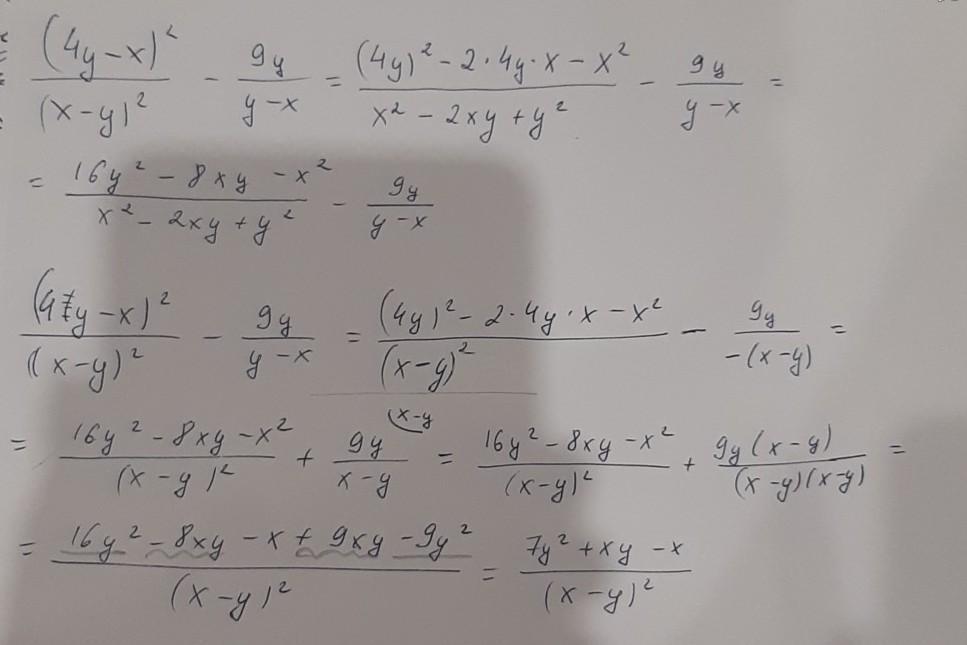 (4y-x)²/(x-y)² - 9y/(y-x) = ((4y)² - 2·4y·x - x²)/(x² - 2xy + y²) - 9y/(y-x) =
= (16y² - 8xy - x²)/(x² - 2xy + y²) - 9y/(y-x)
(4y-x)²/(x-y)² - 9y/(y-x) = ((4y)² - 2·4y·x - x²)/(x-y)² - 9y/(-(x-y)) =
= (16y² - 8xy - x²)/(x-y)² + 9y/(x-y) (x-y = (16y² - 8xy - x²)/(x-y)² + 9y(x-y)/((x-y)(x-y)) =
= (16y² - 8xy - x + 9xy - 9y²)/(x-y)² = (7y² + xy - x)/(x-y)²